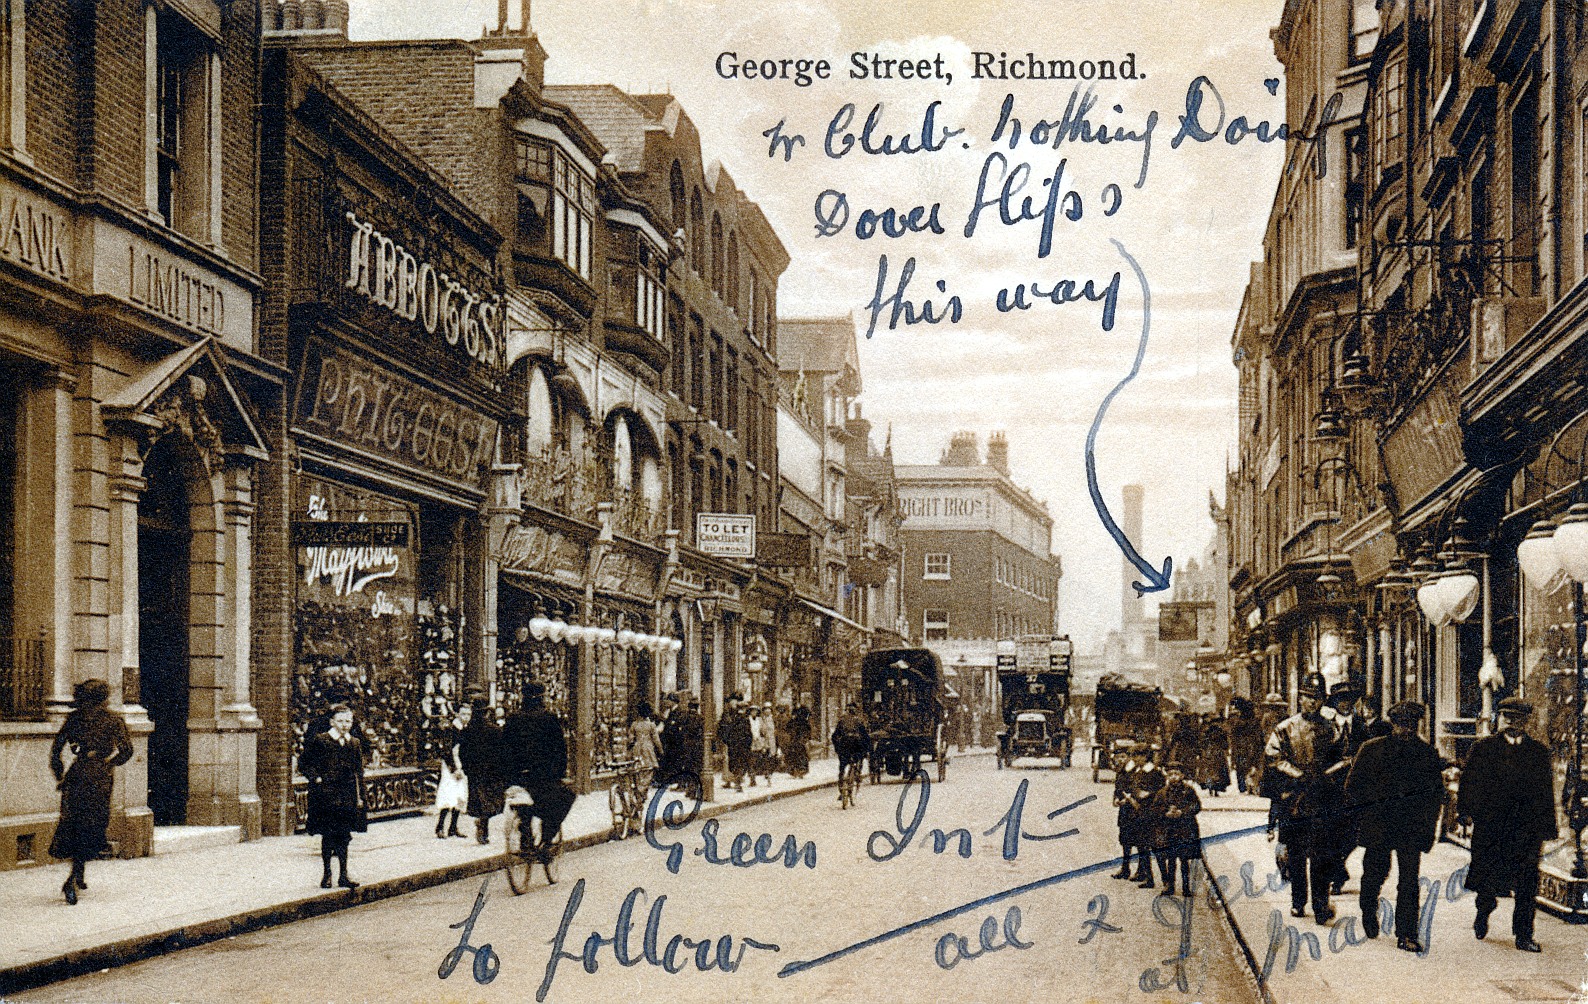 George Street, Richmond.
Club. Nothing Doing
Dover Slips
this way
BANK
LIMITED
ABBOTTS
PHIT-EESI
TO LET
CHANCELLORS
RICHMOND
RIGHT BROS
37
Green Ink
to follow
all 2
at